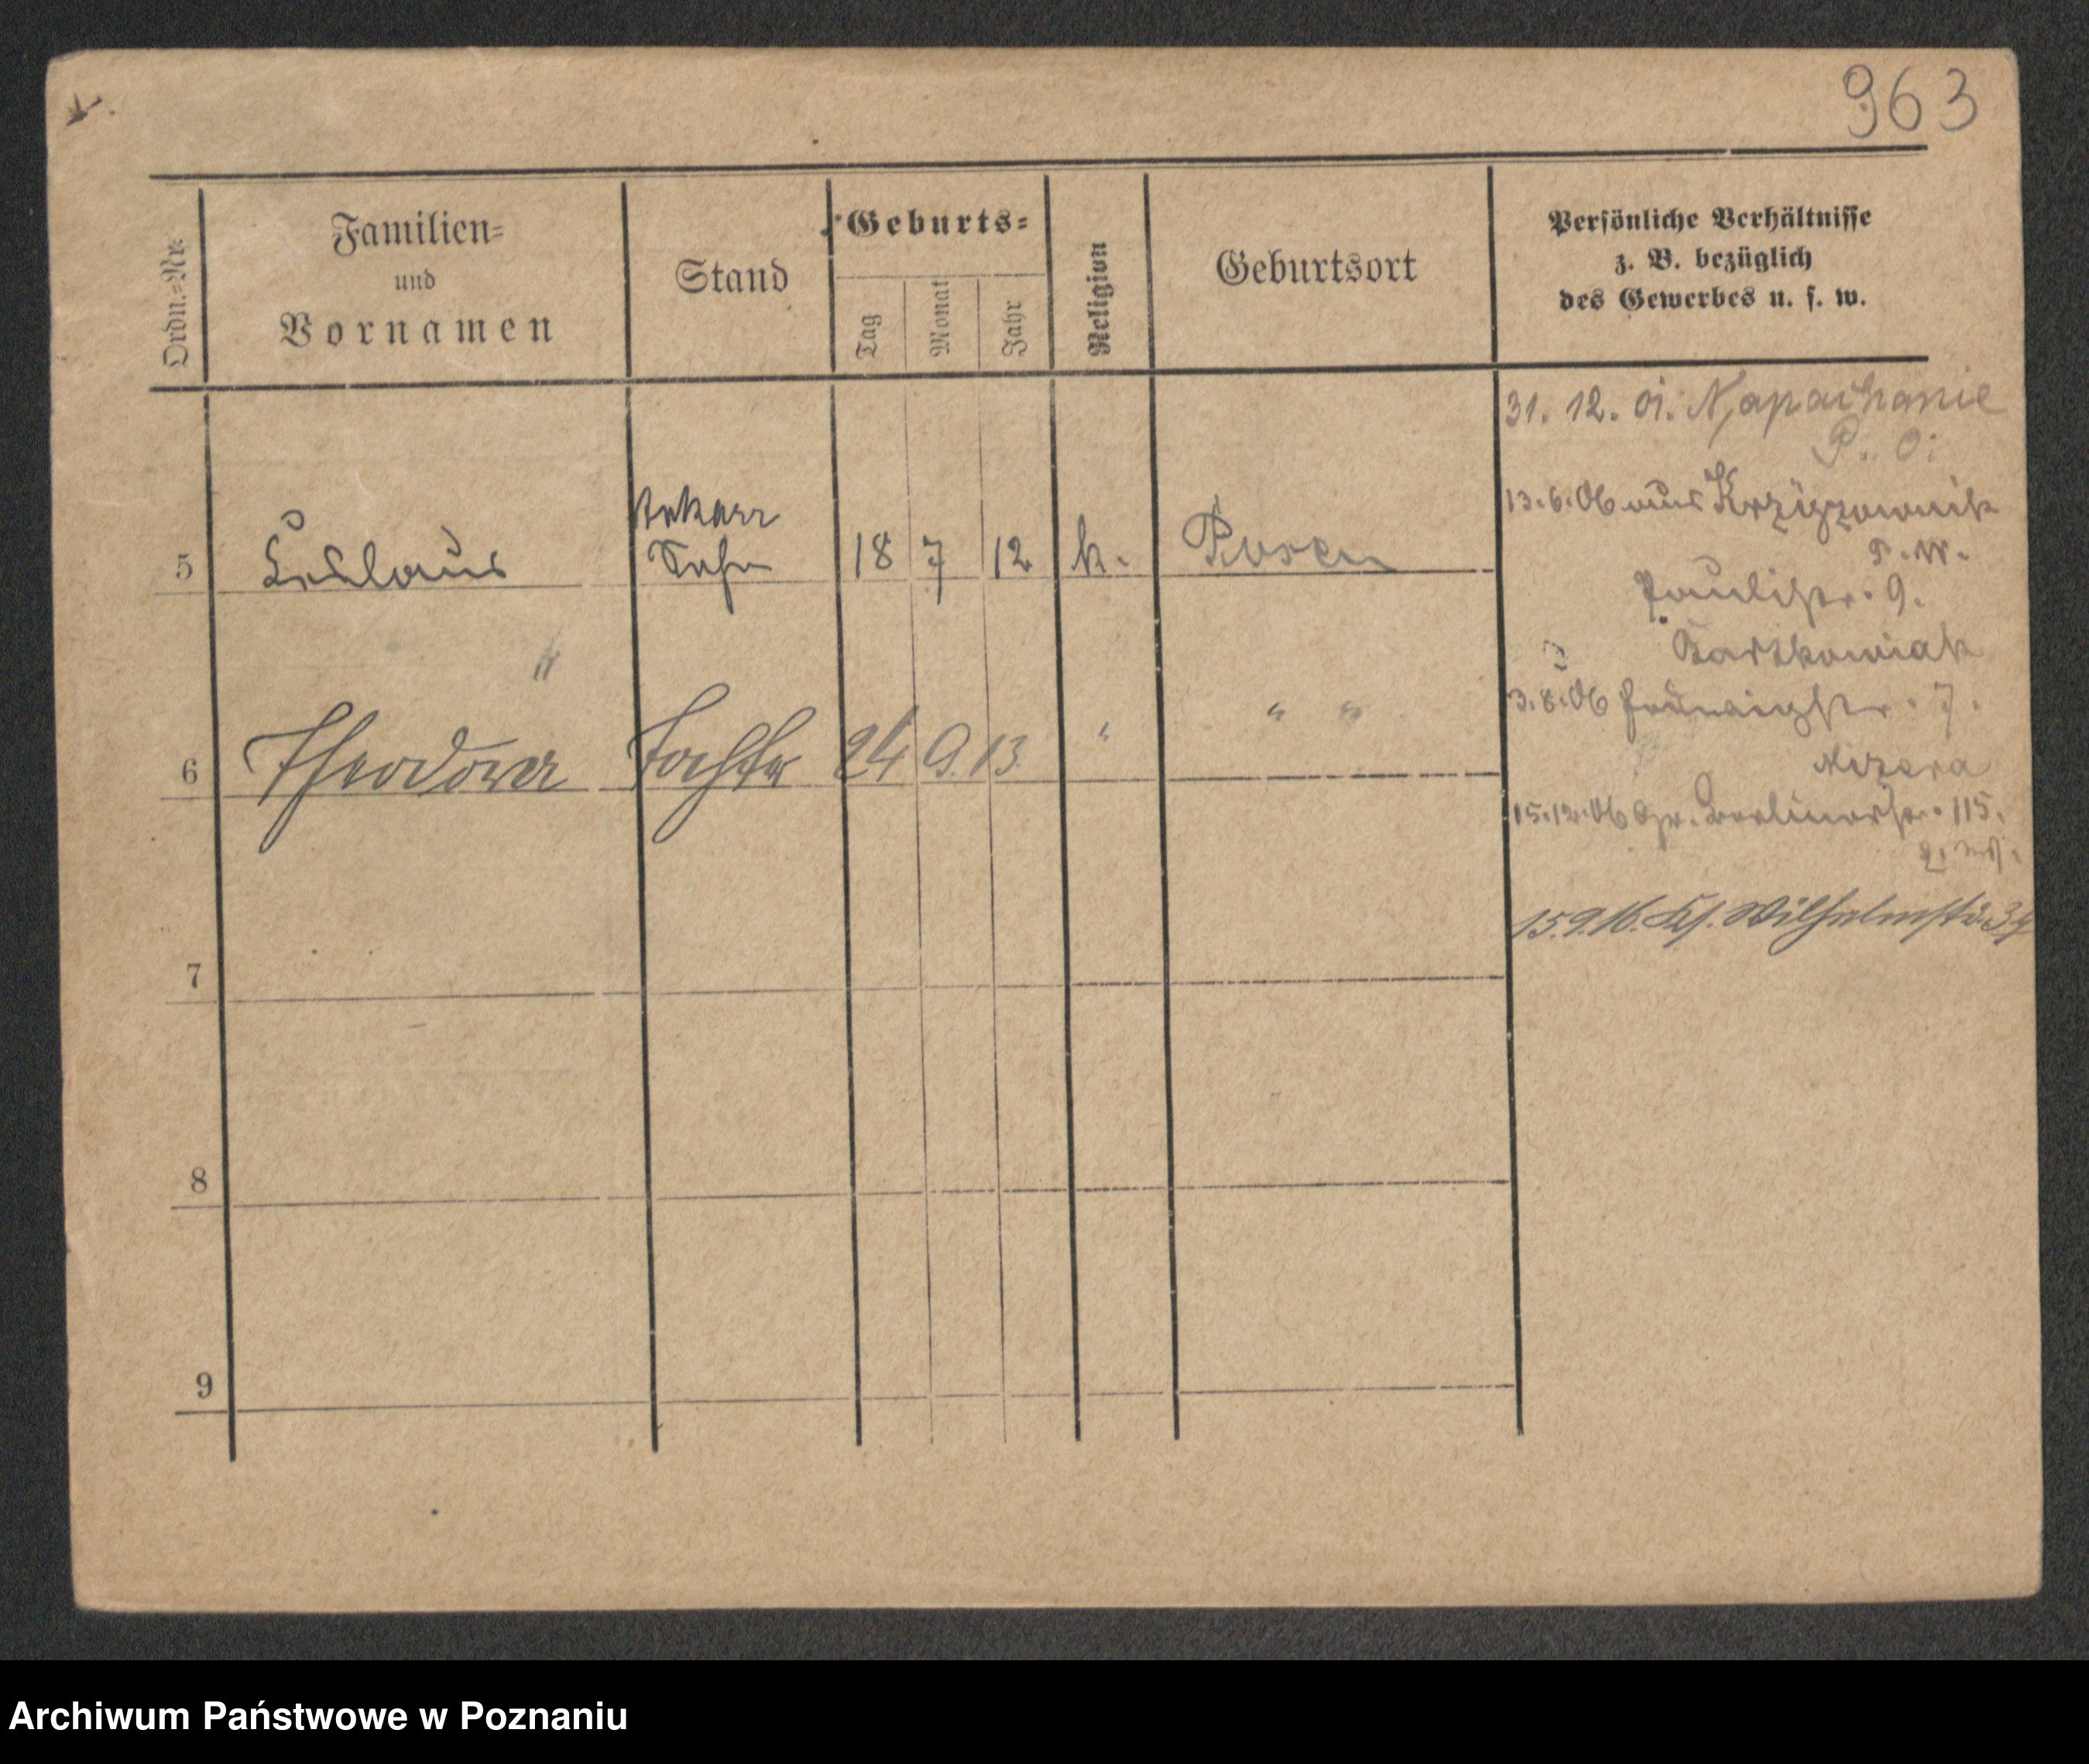 963
Ordn.-Nr.
Familien-
und
Vornamen
Stand
Geburts-
Tag
Monat
Jahr
Religion
Geburtsort
Persönliche Verhältnisse
z. B. bezüglich
des Gewerbes u. s. w.
31. 12. 01. Napachanie
P. O.
13.6.06 aus
P. W.
5
Sohn
18 7 12 k. Posen
Paulistr. 9.
Bartkowiak
"
3.8.06 7.
6 Theodora Tochter 24 9. 13 " " "
Mizera
15.12.06 Gr. Berlinerstr. 115.
15.9.16. Wilhelmstr.
7
8
9
Archiwum Państwowe w Poznaniu